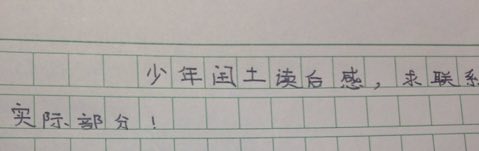 少年闰土读后感，求联系
实际部分！